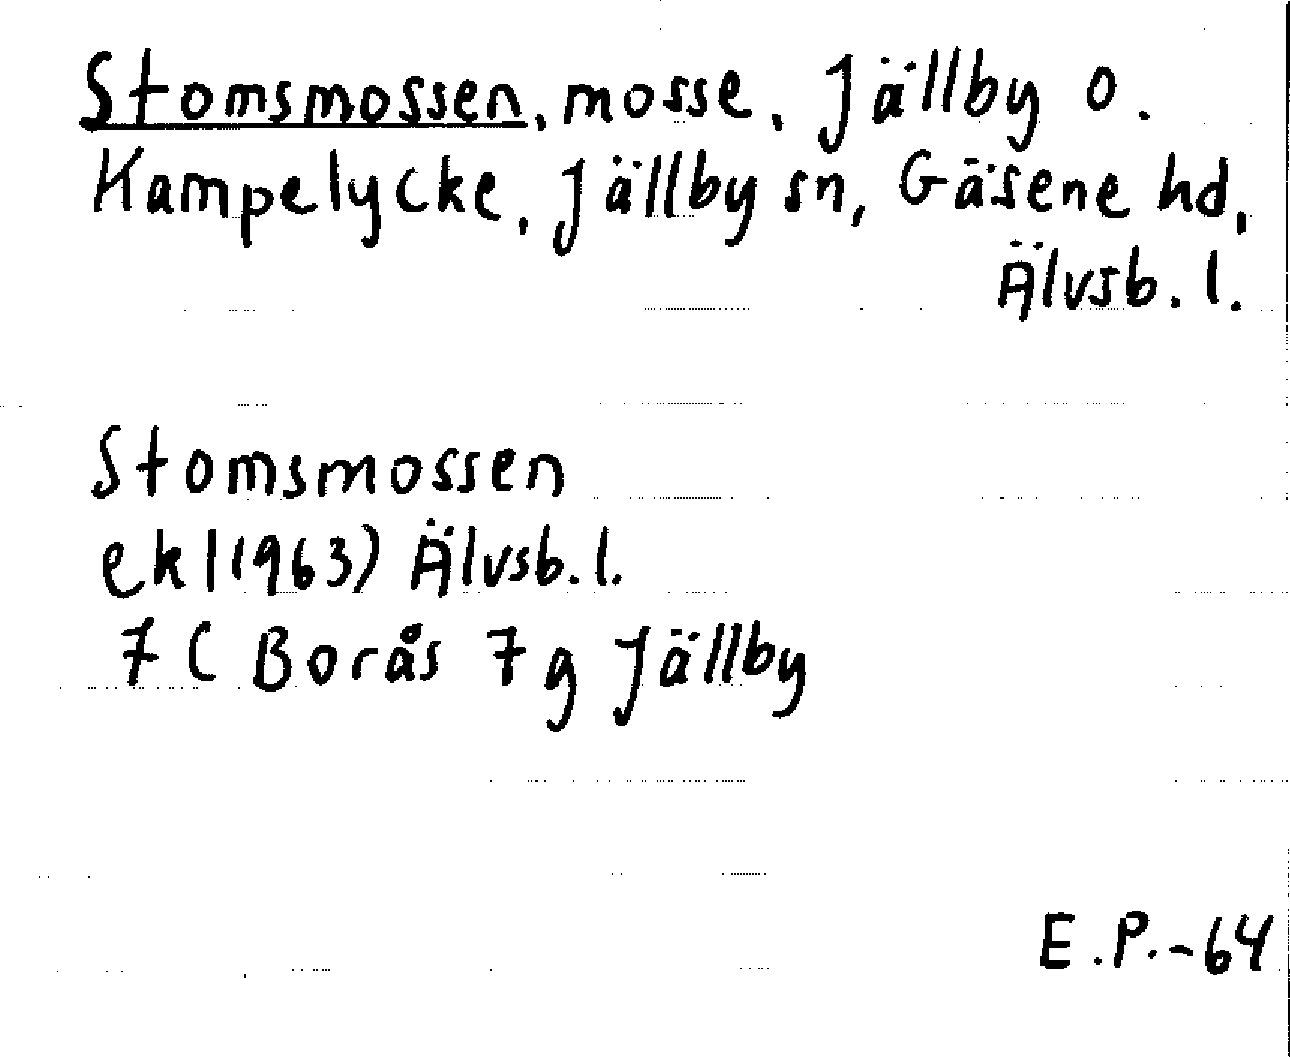 Stomsmossen, mosse, Jällby o.
Kampelycke, Jällby sn, Gäsene hd,
Älvsb. l.
Stomsmossen
ek l (1963) Älvsb. l.
7 C Borås 7 g Jällby
E.P.-64